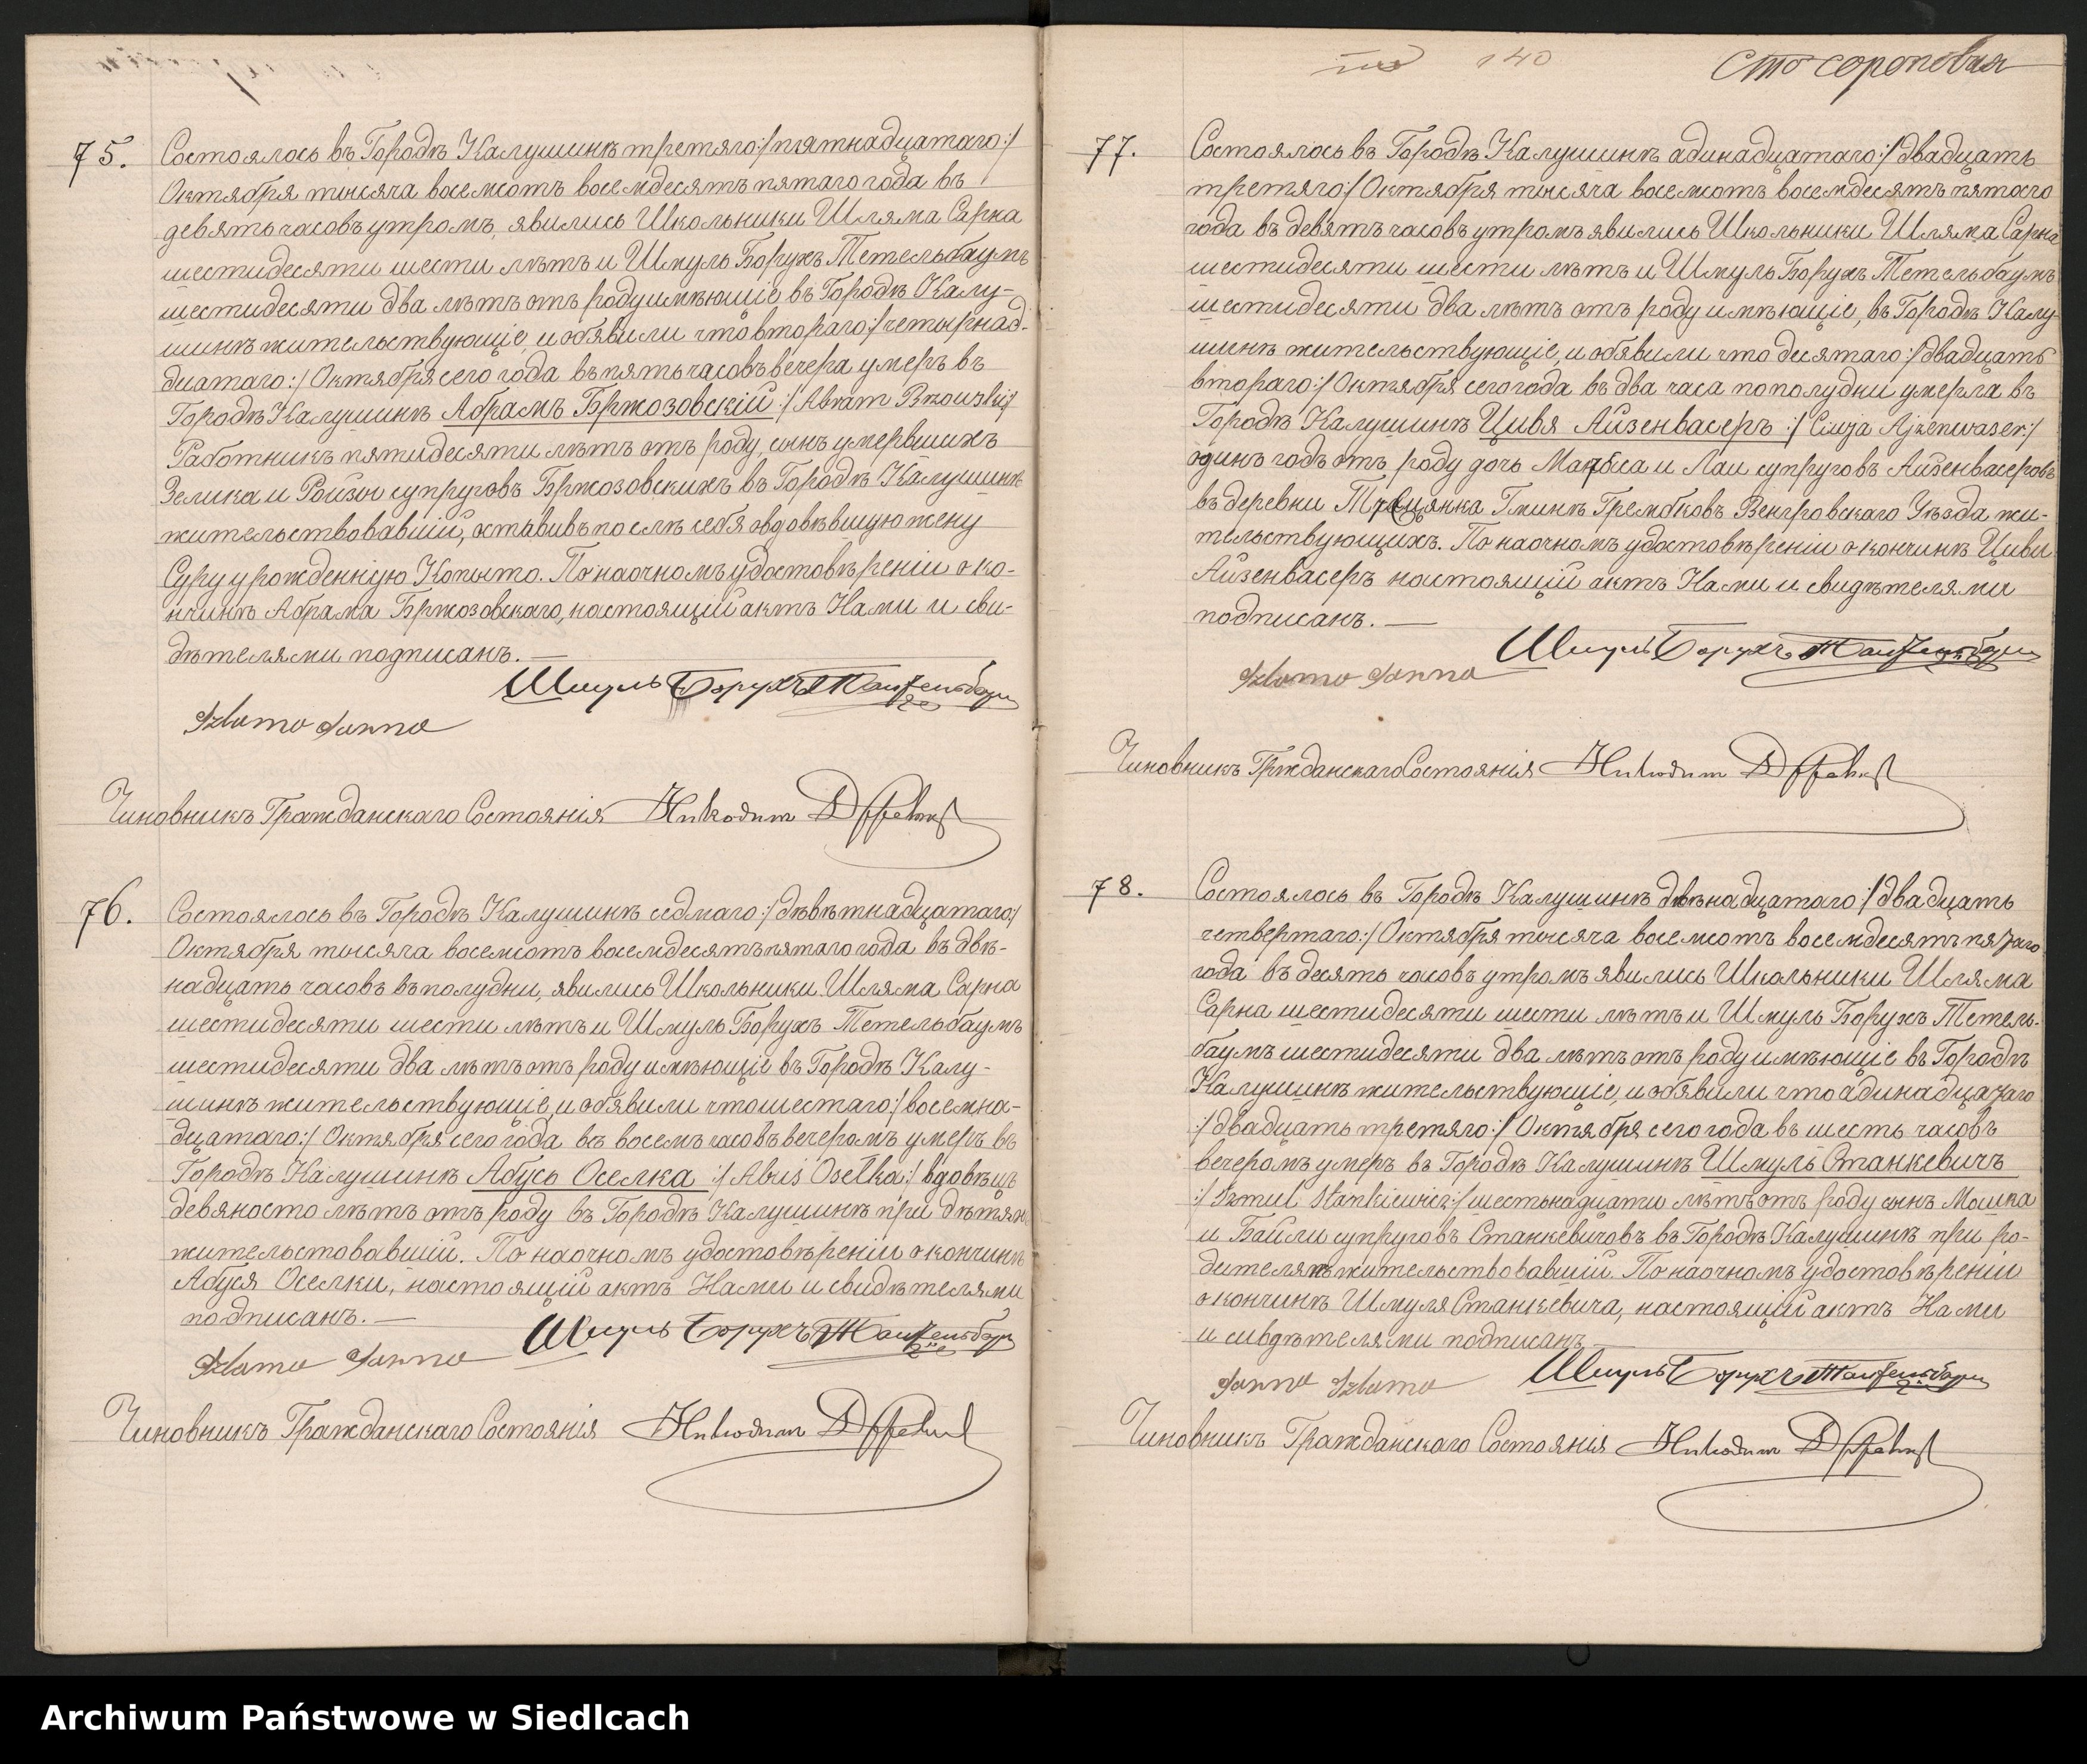 75.
Состоялось въ Городѣ Калушинѣ третяго :/ пятнадцатаго :/
Октября тысяча восемсотъ восемдесятъ пятаго года въ
девять часовъ утромъ, явились Школьники Шляма Сарна
шестидесяти шести лѣтъ и Шмуль Борухъ Тетельбаумъ
шестидесяти два лѣтъ отъ роду имѣющіе въ Городѣ Калу-
шинѣ жительствующіе, и обявили что втораго :/ четырнад-
цатаго :/ Октября сего года въ пять часовъ вечера умеръ въ
Городѣ Калушинѣ Абрамъ Бржозовскій :/ Abram Brzozowski :/
Работникъ пятидесяти лѣтъ отъ роду, сынъ умершихъ
Зелика и Ройзы супруговъ Бржозовскихъ въ Городѣ Калушинѣ
жительствовавшій, оставивъ послѣ себя овдовѣвшую жену
Суру урожденную Копыто. По наочномъ удостовѣреніи о ко-
нчинѣ Абрама Бржозовскаго, настоящій актъ Нами и сви-
дѣтелями подписанъ. —
Шмуль Борухъ
Szlama Sarna
Чиновникъ Гражданскаго Состоянія Никодим
76.
Состоялось въ Городѣ Калушинѣ седмаго :/ дѣвѣтнадцатаго :/
Октября тысяча восемсотъ восемдесятъ пятаго года въ двѣ-
надцать часовъ въ полудни, явились Школьники Шляма Сарна
шестидесяти шести лѣтъ и Шмуль Борухъ Тетельбаумъ
шестидесяти два лѣтъ отъ роду имѣющіе въ Городѣ Калу-
шинѣ жительствующіе, и обявили что шестаго :/ восемна-
дцатаго :/ Октября сего года въ восемъ часовъ вечеромъ умеръ въ
Городѣ Калушинѣ Абусь Оселка :/ Abuś Osełka :/ вдовѣцъ
девяносто лѣтъ отъ роду въ Городѣ Калушинѣ при дѣтяхъ
жительстовавшій. По наочномъ удостовѣреніи о кончинѣ
Абуся Оселки, настоящій актъ Нами и свидѣтелями
подписанъ. —
Шмуль Борухъ
Szlama Sarna
Чиновникъ Гражданскаго Состоянія Никодим
140
Сто сороковая
77.
Состоялось въ Городѣ Калушинѣ адинадцатаго :/ двадцать
третяго :/ Октября тысяча восемсотъ восемдесятъ пятаго
года въ девять часовъ утромъ явились Школьники Шляма Сарна
шестидесяти шести лѣтъ и Шмуль Борухъ Тетельбаумъ
шестидесяти два лѣтъ отъ роду имѣющіе, въ Городѣ Калу-
шинѣ жительствующіе, и обявили что десятаго :/ двадцать
втораго :/ Октября сего года въ два часа пополудни умерла въ
Городѣ Калушинѣ Цивя Айзенвасеръ :/ Ciwja Ajzenwaser :/
одинъ годъ отъ роду дочь и Лаи супруговъ Айзенвасеровъ
въ деревни Гминѣ Грембковъ Венгровскаго Уѣзда жи-
тельствующихъ. По наочномъ удостовѣреніи о кончинѣ Циви
Айзенвасеръ настоящій актъ Нами и свидѣтелями
подписанъ. —
Шмуль Борухъ
Szlama Sarna
Чиновникъ Гржданскаго Состоянія Никодим
78.
Состоялось въ Городѣ Калушинѣ двѣнадцатаго :/ двадцать
четвертаго :/ Октября тысяча восемсотъ восемдесятъ пятаго
года въ десять часовъ утромъ явились Школьники Шляма
Сарна шестидесяти шести лѣтъ и Шмуль Борухъ Тетель-
баумъ шестидесяти два лѣтъ отъ роду имѣющіе въ Городѣ
Калушинѣ жительствующіе, и обявили что адинадцатаго
:/ двадцать третяго :/ Октября сего года въ шесть часовъ
вечеромъ умеръ въ Городѣ Калушинѣ Шмуль Станкевичъ
:/ Szmul Stankiewicz :/ шестьнадцати лѣтъ отъ роду сынъ Мошка
и Байли супруговъ Станкевичовъ въ Городѣ Калушинѣ при ро-
дителяхъ жительствовавшій. По наочномъ удостовѣреніи
о кончинѣ Шмуля Станкевича, настоящій актъ Нами
и сивдѣтелями подписанъ. —
Шмуль Борухъ
Sarna Szlama
Чиновникъ Гражданскаго Состоянія Никодим
Archiwum Państwowe w Siedlcach